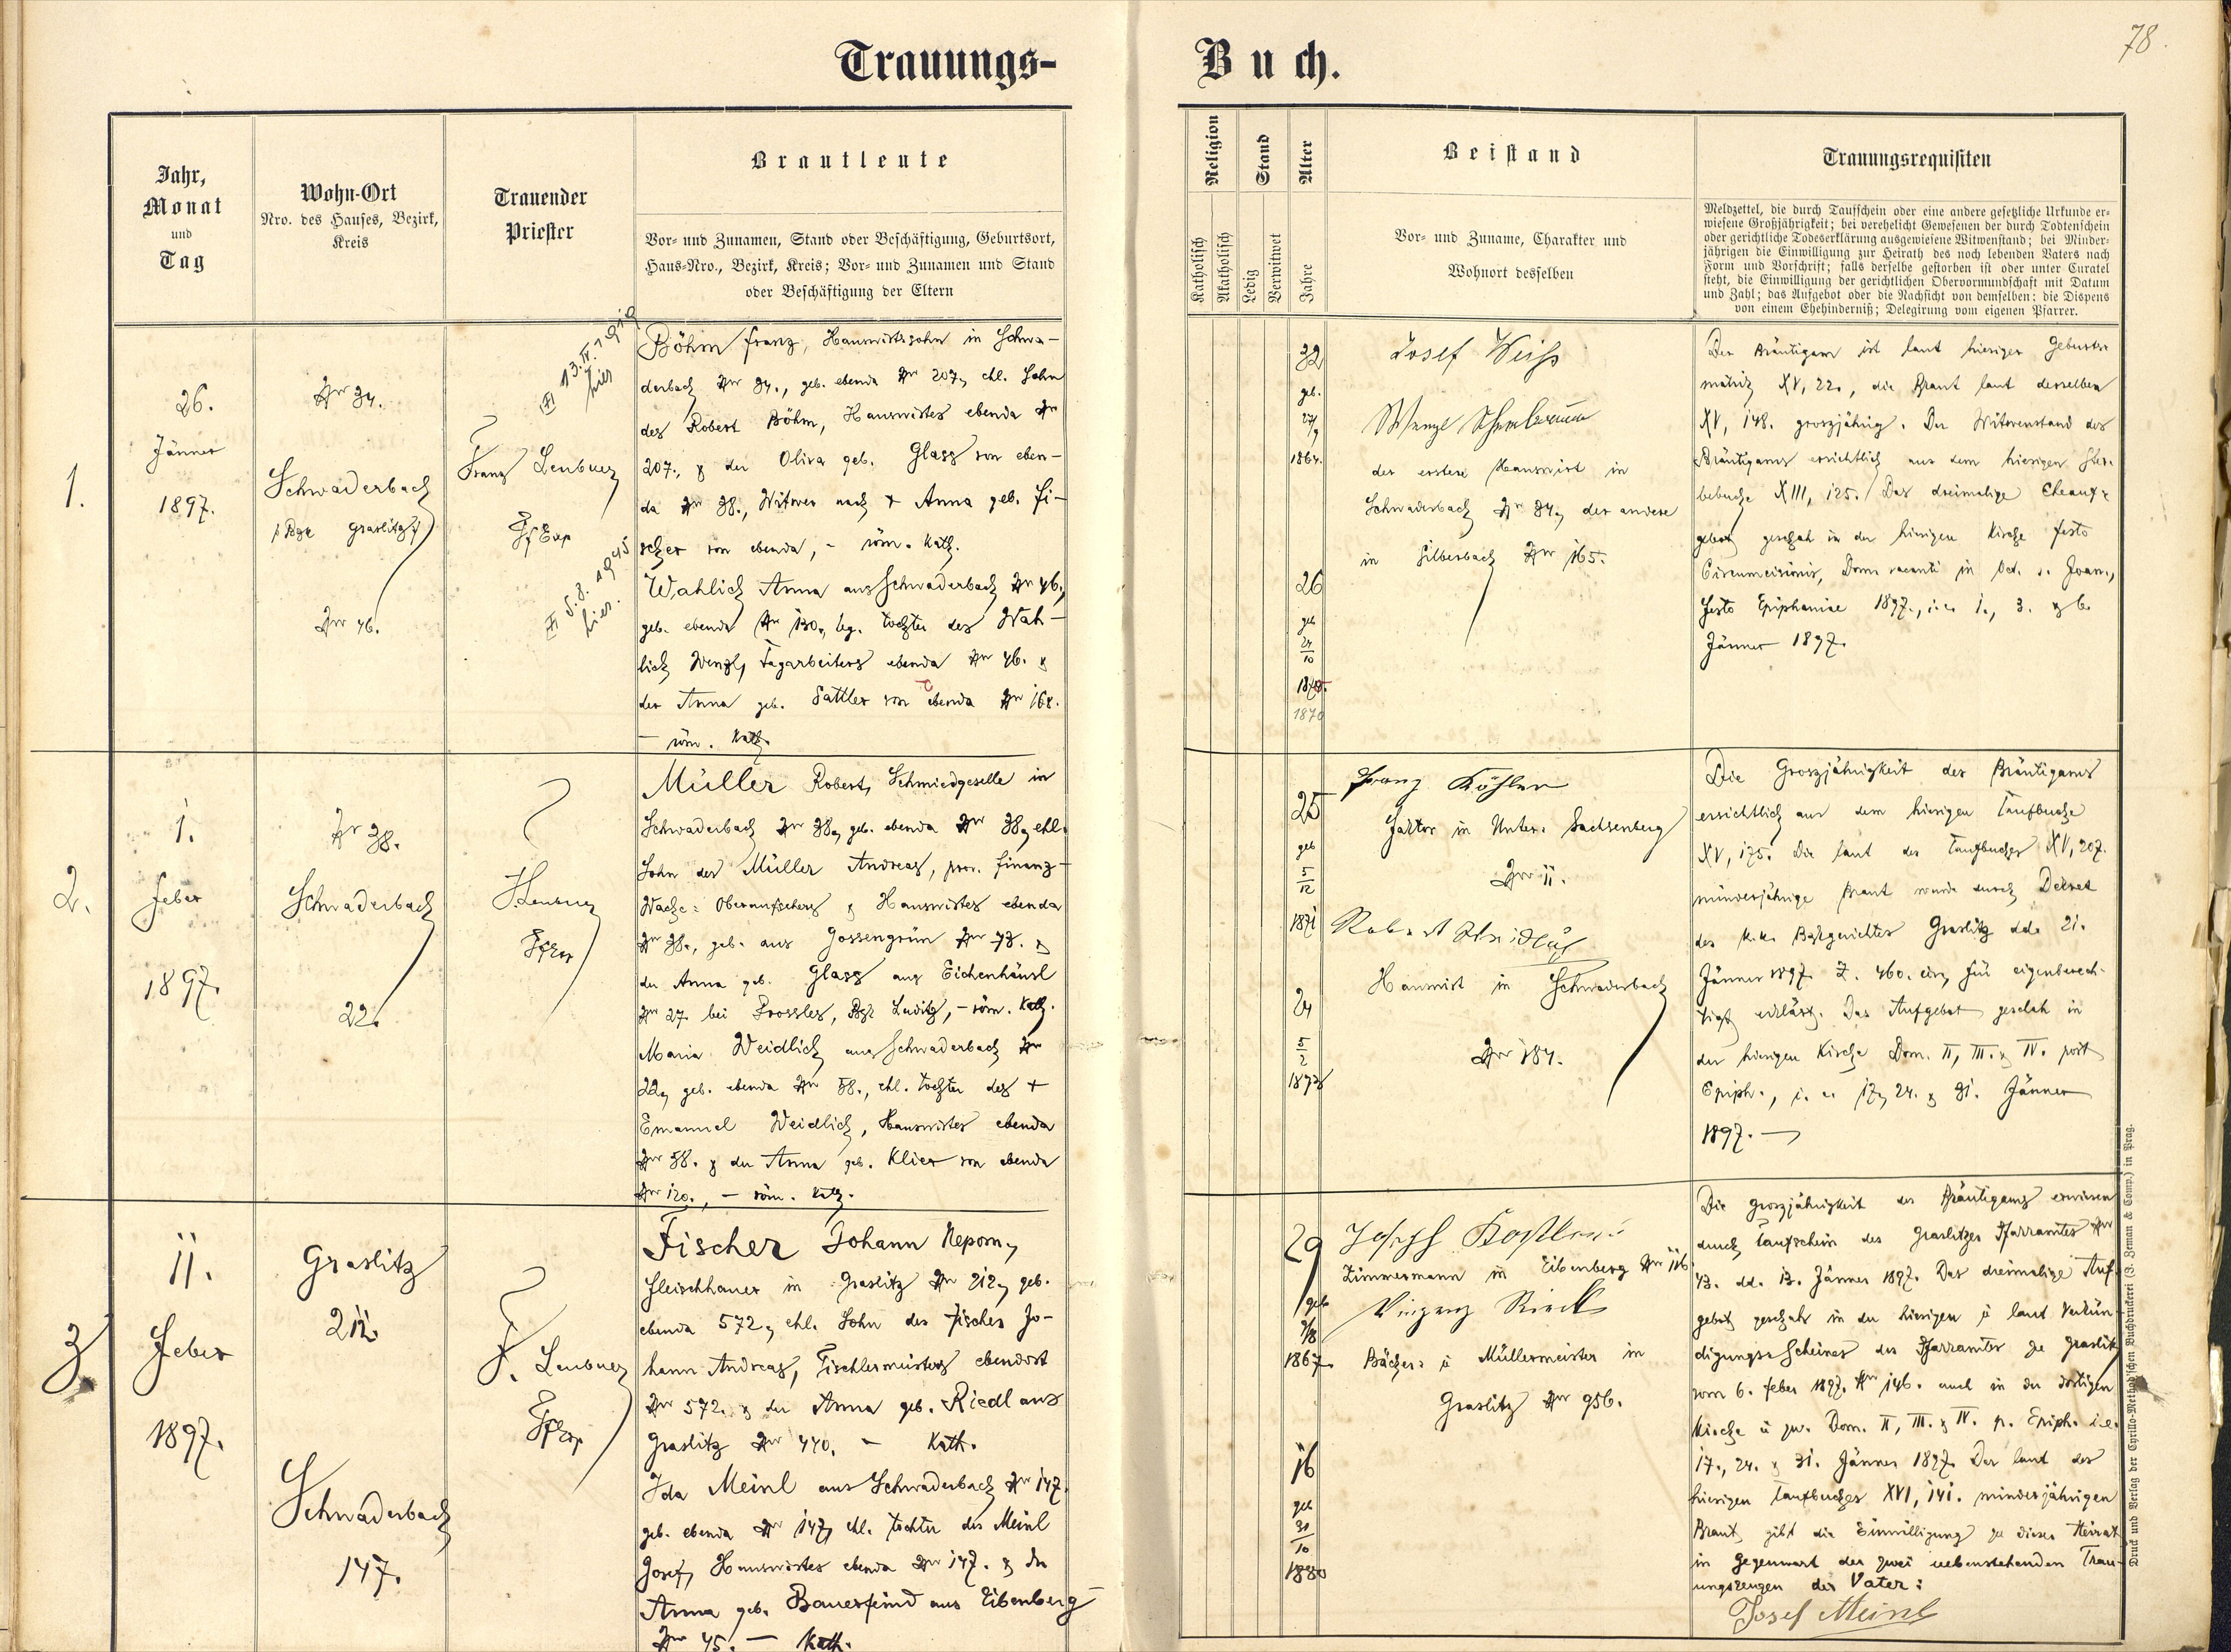 78.
Trauungs-
Buch.
Jahr,
Monat
und
Tag
Wohn-Ort
Nro. des Hauses, Bezirk,
Kreis
Trauender
Priester
Brautleute
Vor- und Zunamen, Stand oder Beschäftigung, Geburtsort,
Haus-Nro., Bezirk, Kreis; Vor- und Zunamen und Stand
oder Beschäftigung der Eltern
Religion
Katholisch
Akatholisch
Stand
Ledig
Verwitwet
Alter
Jahre
Beistand
Vor- und Zuname, Charakter und
Wohnort desselben
Trauungsrequisiten
Meldzettel, die durch Taufschein oder eine andere gesetzliche Urkunde er-
wiesene Großjährigkeit; bei verehelicht Gewesenen der durch Todtenschein
oder gerichtliche Todeserklärung ausgewiesene Witwenstand; bei Minder-
jährigen die Einwilligung zur Heirath des noch lebenden Vaters nach
Form und Vorschrift; falls derselbe gestorben ist oder unter Curatel
steht, die Einwilligung der gerichtlichen Obervormundschaft mit Datum
und Zahl; das Aufgebot oder die Nachsicht von demselben; die Dispens
von einem Ehehinderniß; Delegirung vom eigenen Pfarrer.
1.
26.
Jänner
1897.
Nr 34.
Schwaderbach
Graslitz
Nr 46.
13. IV. 1919
hier
Franz Leubner
5. 8. 1945
hier.
Böhm Franz, Hauswirtssohn in Schwa-
derbach Nr 34., geb. ebenda Nr 207, ehl. Sohn
des Robert Böhm, Hauswirtes ebenda Nr
207., & der Oliva geb. Glass von eben-
da Nr 38., Witwer nach + Anna geb. Fi-
scher von ebenda, - röm. kath.
Wahlich Anna aus Schwaderbach Nr 46,
geb. ebenda Nr 130., leg. Tochter des Wah-
lich Wenzl, Tagarbeiters ebenda Nr 46. &
der Anna geb. Sattler von ebenda Nr 168.
- röm. kath.
32
geb.
27/9
1864.
26
geb
24/10
1870
Josef Weiss
Wenzl
der erstere Hauswirt in
Schwaderbach Nr 34, der andere
in Silberbach Nr 165.
Der Bräutigam ist laut hiesiger Geburts-
matrik XV, 22., die Braut laut derselben
XV, 148. groszjährig. Der Witwenstand des
Bräutigams ersichtlich aus dem hiesigen Ster-
bebuche XIII, 125. Das dreimalige Eheauf-
gebot geschah in der hiesigen Kirche festo
Circumcisionis, Dom. vacanti in Oct. s. Joan.,
festo Epiphaniae 1897., i. e. 1., 3. & 6.
Jänner 1897.
2.
1.
Feber
1897.
Nr 38.
Schwaderbach
22.
F. Leubner
Müller Robert, Schmiedgeselle in
Schwaderbach Nr 38, geb. ebenda Nr 38, ehl.
Sohn des Müller Andreas, pens. Finanz-
Wache-Oberaufsehers & Hauswirtes ebenda
Nr 38., geb. aus Gossengrün Nr 73. &
der Anna geb. Glass aus Eichenhäusl
Nr 27. bei Prossles, Luditz, - röm. kath.
Maria Weidlich aus Schwaderbach Nr
22, geb. ebenda Nr 58., ehl. Tochter des +
Emanuel Weidlich, Hauswirtes ebenda
Nr 58. & der Anna geb. Klier von ebenda
Nr 120., - röm. kath.
25
geb
5/12
1871
24
5/2
1873
Franz Köhler
Faktor in Unter-Sachsenberg
Nr 11.
Robert Weidlich
Hauswirt in Schwaderbach
Nr 184.
Die Groszjährigkeit des Bräutigams
ersichtlich aus dem hiesigen Taufbuche
XV, 175. Die laut des Taufbuches XV, 207.
minderjährige Braut wurde durch Dekret
des k. k. Bezgerichtes Graslitz dd. 21.
Jänner 1897 Z. 460. civ, für eigenberech-
tigt erklärt. Das Aufgebot geschah in
der hiesigen Kirche Dom. II, III. & IV. post
Epiph., i. e. 17, 24. & 31. Jänner
1897.
3.
11.
Feber
1897.
Graslitz
212.
Schwaderbach
147.
F. Leubner
Fischer Johann Nepom,
Fleischhauer in Graslitz Nr 212, geb.
ebenda 572, ehl. Sohn des Fischer Jo-
hann Andreas, Tischlermeisters ebendort
Nr 572. & der Anna geb. Riedl aus
Graslitz Nr 440. - Kath.
Ida Meinl aus Schwaderbach Nr 147.
geb. ebenda Nr 147, ehl. Tochter des Meinl
Josef, Hauswirtes ebenda Nr 147. & der
Anna geb. Bauerfeind aus Eibenberg
Nr 45. - Kath.
29
geb
1867.
16
geb
31/10
1880
Joseph
Zimmermann in Eibenberg Nr 116
Vinzenz Rieck
Bäcker- u Müllermeister in
Graslitz Nr 956.
Die Groszjährigkeit des Bräutigams erwiesen
durch Taufschein des Graslitzer Pfarramtes Nr
43. dd. 13. Jänner 1897. Das dreimalige Auf-
gebot geschah in der hiesigen u laut Verkün-
digungs-Scheines des Pfarramtes zu Graslitz
vom 6. Feber 1897. Nr 146. auch in der dortigen
Kirche u zw. Dom. II, III. & IV. p. Epiph. i. e.
17., 24. & 31. Jänner 1897. Der laut des
hiesigen Taufbuches XVI, 141. minderjährigen
Braut gibt die Einwilligung zu dieser Heirat
in Gegenwart der zwei nebenstehenden Trau-
ungszeugen der Vater:
Josef Meinl
Druck und Verlag der Cyrillo-Method'schen Buchdruckerei (J. Zeman & Comp.) in Prag.